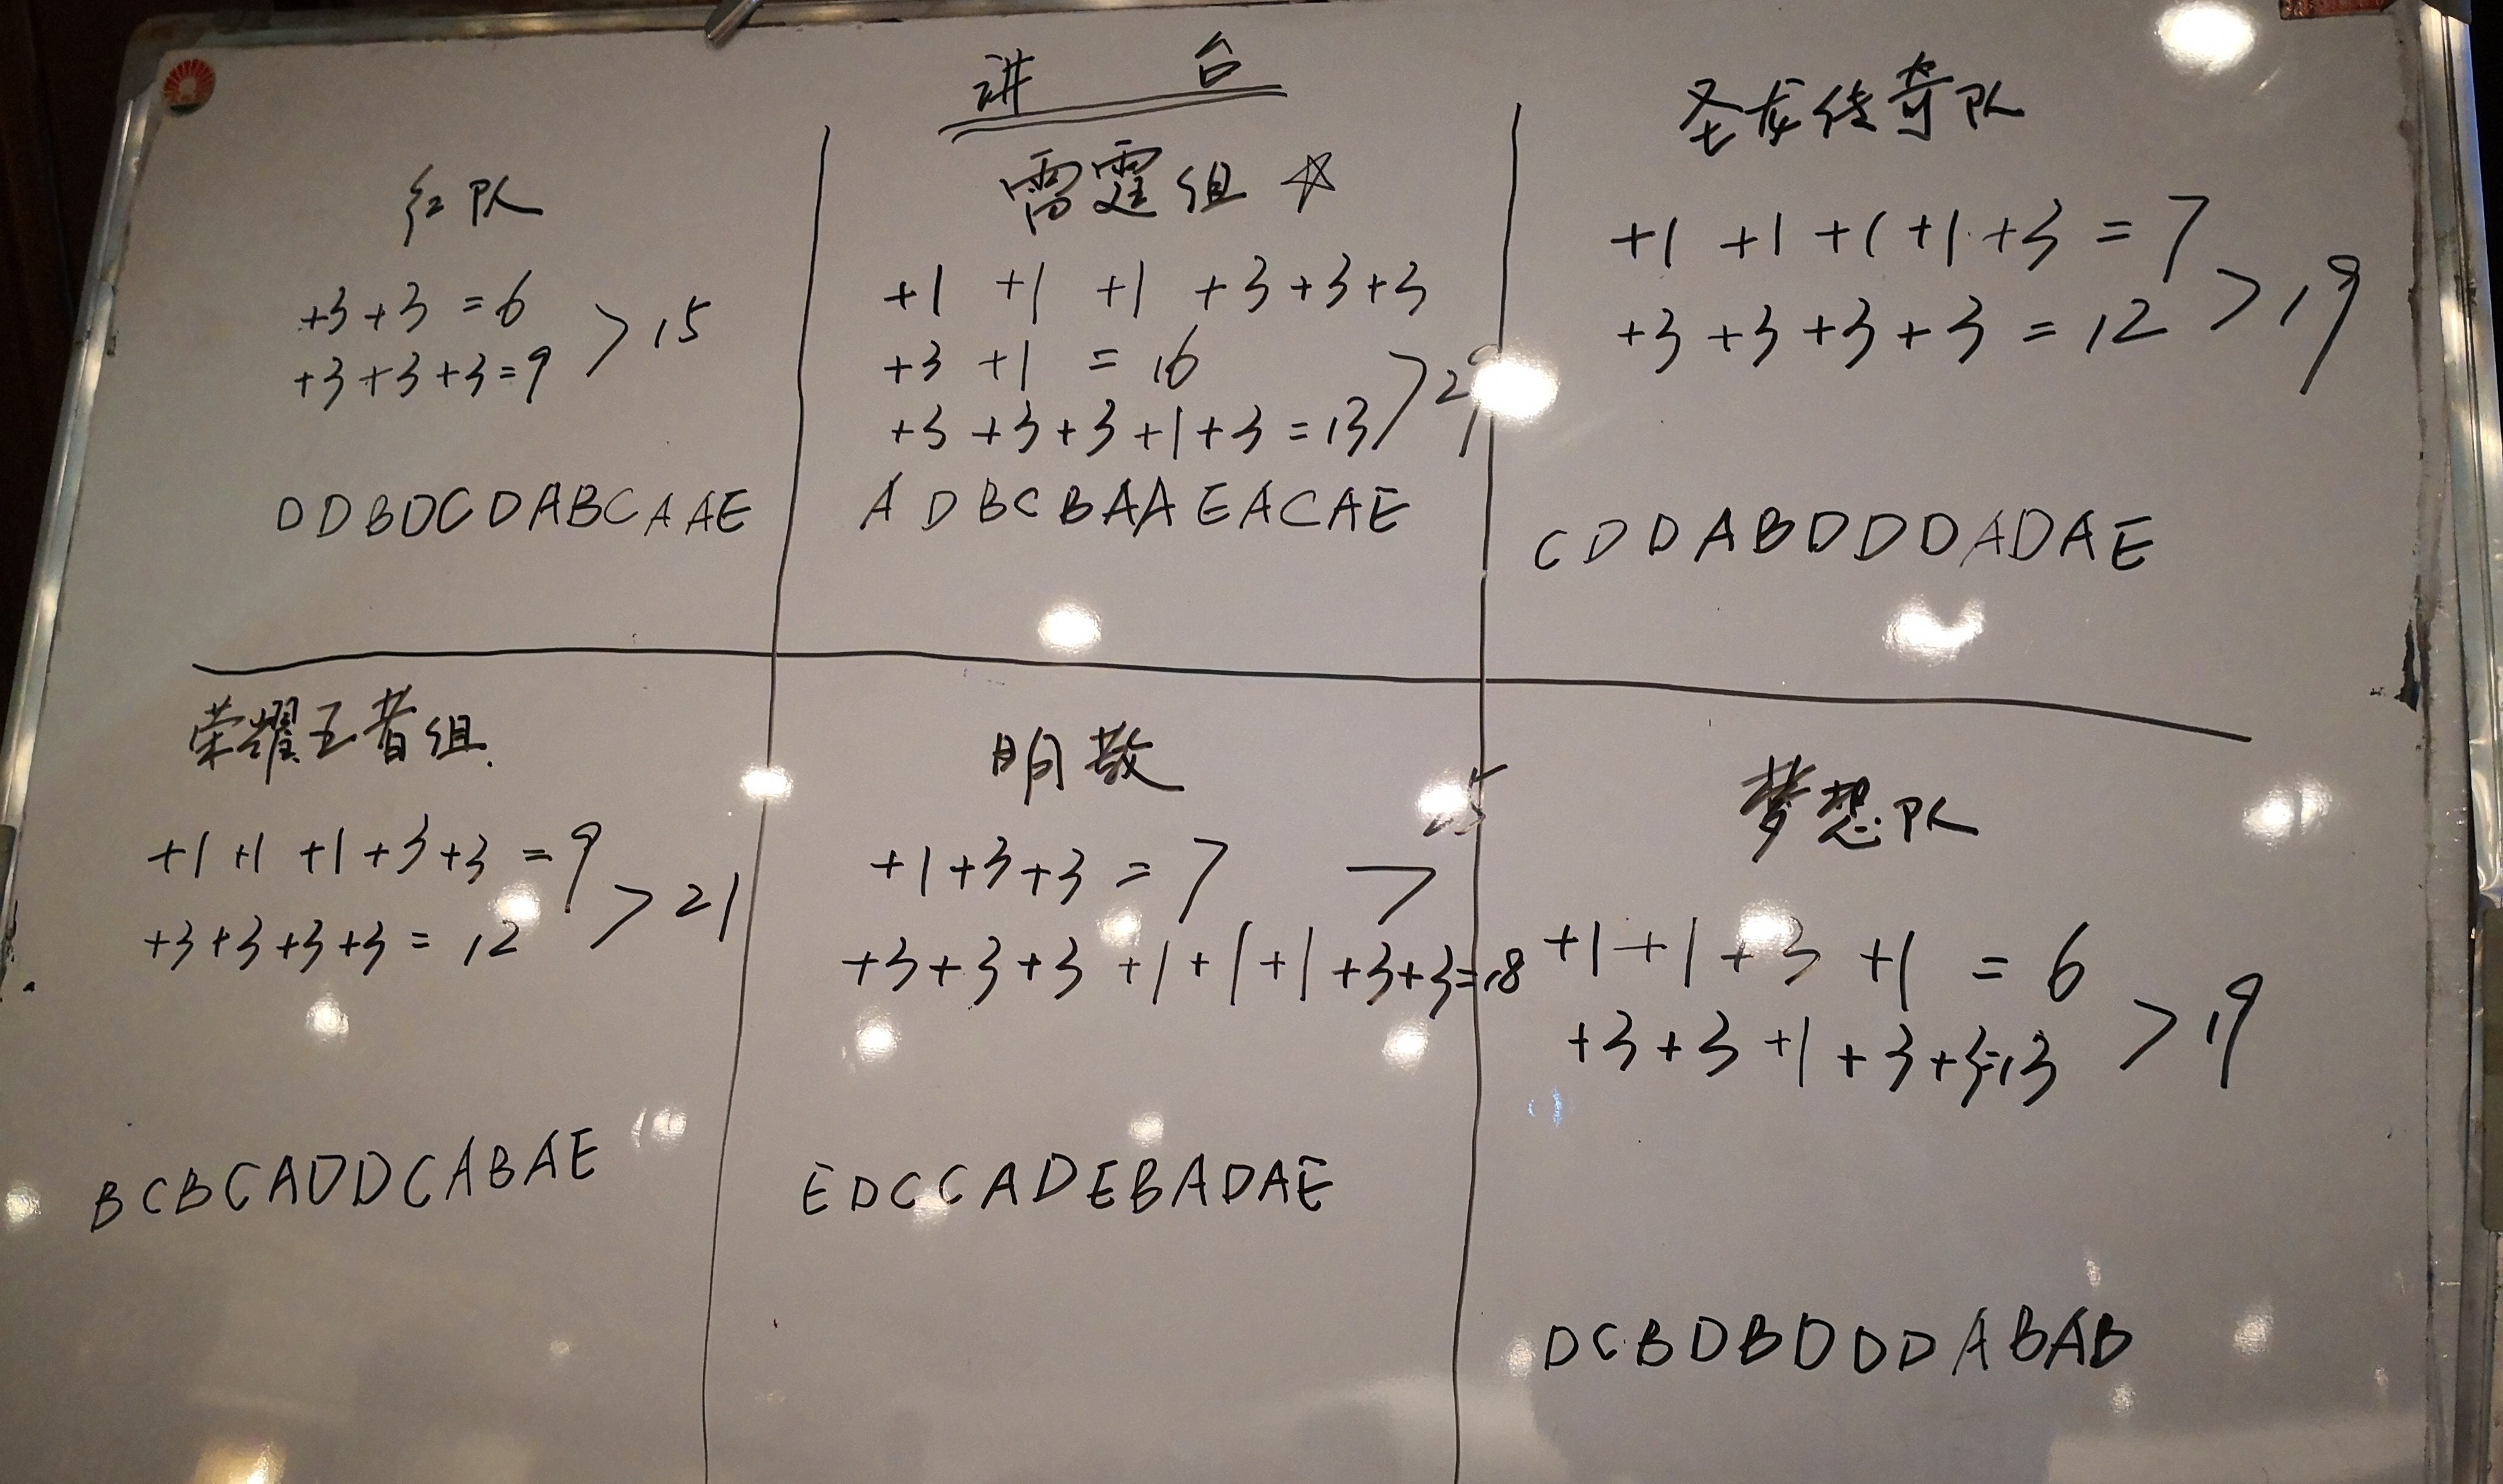 讲 台
红队
+3+3 =6
+3+3+3=9
>15
DDBDCDABCAAE
雷霆组 ☆
+1 +1 +1 +3+3+3
+3 +1 = 16
+3 +3+3+1+3=13
>29
ADBCBAAEACAE
圣龙传奇队
+1 +1 +1 +1 +3 = 7
+3 +3 +3 +3 = 12
>19
CDDABDDDADAE
荣耀王者组.
+1 +1 +1 +3 +3 =9
+3 +3 +3 +3 = 12
>21
BCBCADDCABAE
+1+3+3 = 7
+3+3+3 +1+1+1+3+3=18
>25
EDCCADEBADAE
梦想队
+1+1+3 +1 = 6
+3+3+1+3+3=13
>19
DCBDBDDDABAB